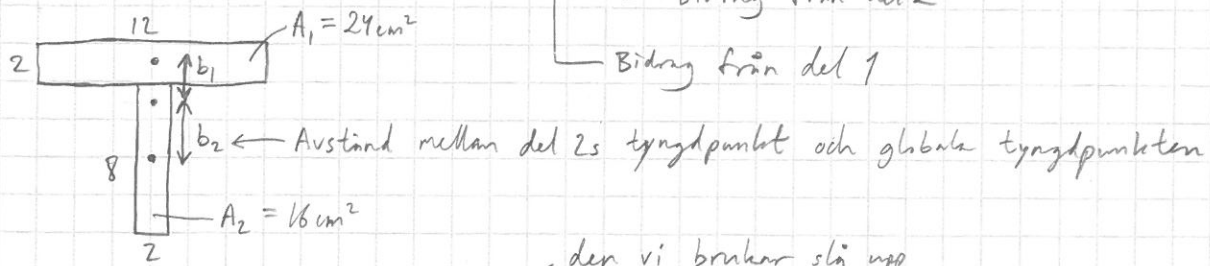 Bidrag från del 2
12
A₁ = 24 cm²
2
b₁
Bidrag från del 1
b₂ ← Avstånd mellan del 2s tyngdpunkt och globala tyngdpunkten
8
A₂ = 16 cm²
2
den vi brukar slå upp